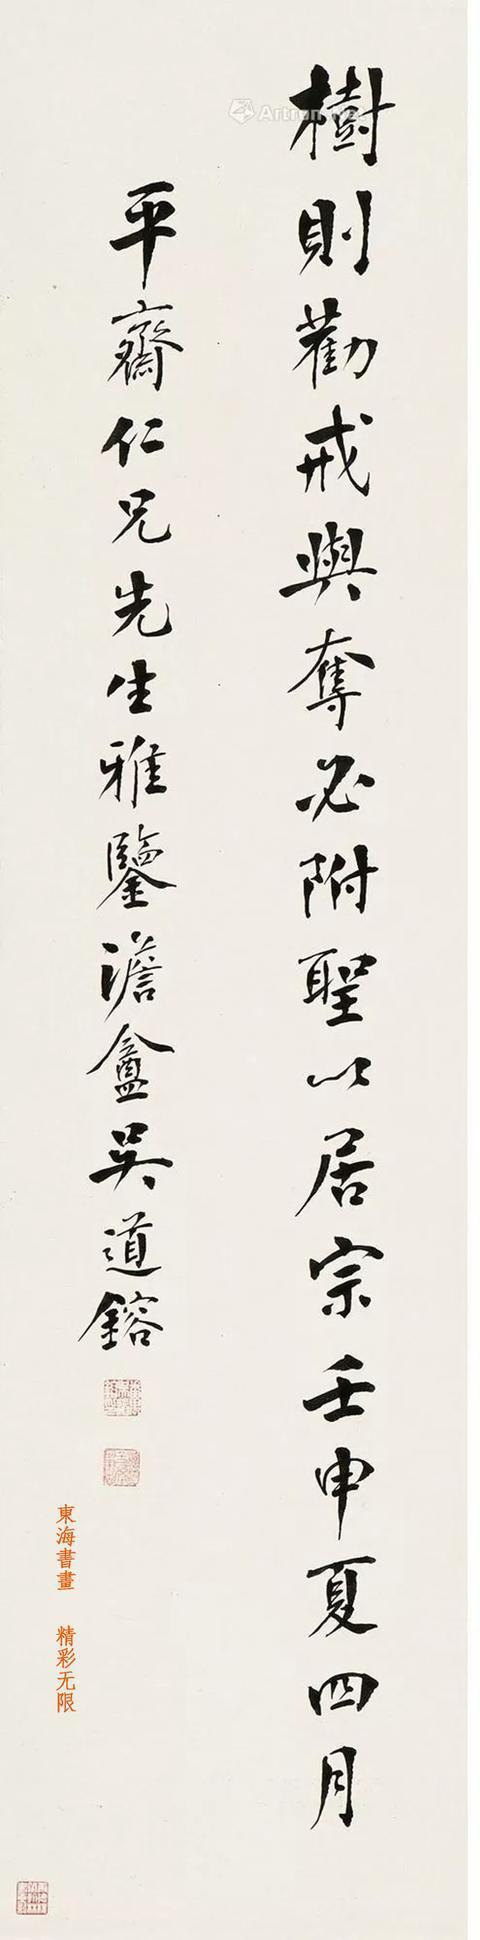 樹則勸戒與奪必附聖以居宗壬申夏四月
平齋仁兄先生雅鑒澹盦吳道鎔
東海書畫 精彩无限